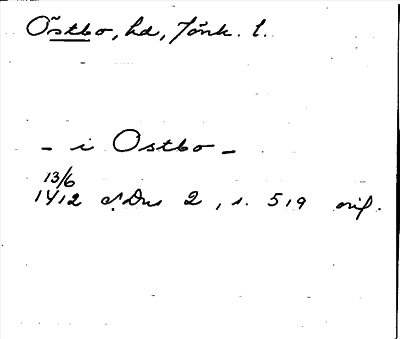 Östbo, hd, Jönk. l.
- i Ostbo -
13/6
1412 SDns 2, s. 519 orig.